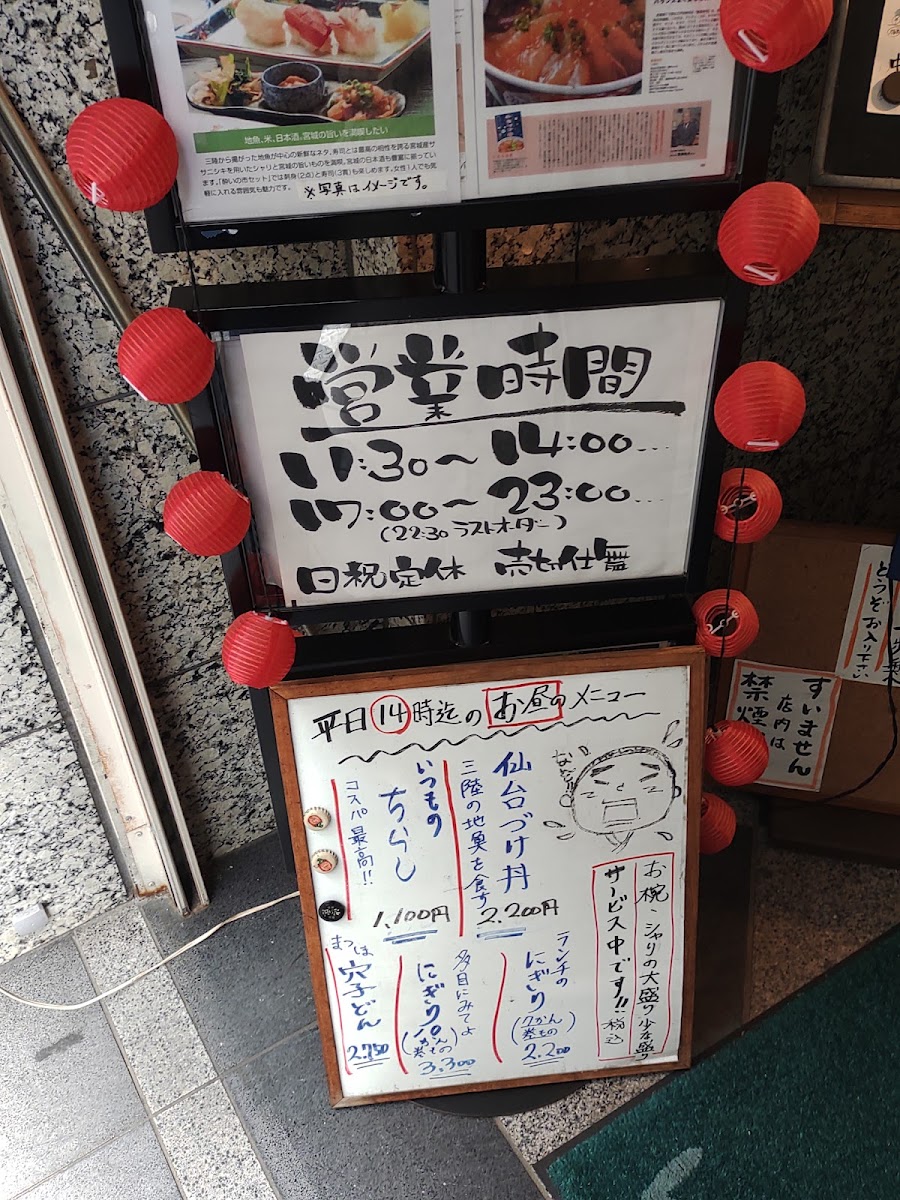 地魚、米、日本酒。宮城の旨いを満喫したい
三陸から揚がった地魚が中心の新鮮なネタ。寿司とは最高の相性を誇る宮城産サ
サニシキを用いたシャリと宮城の旨いものを満喫。宮城の日本酒も豊富に揃ってい
ます。「酔いの市セット」では刺身(2点)と寿司(3貫)も楽しめます。女性1人でも気
軽に入れる雰囲気も魅力です。
※写真はイメージです。
営業時間
11:30〜14:00...
17:00〜23:00...
(22:30 ラストオーダー)
日祝定休 売切仕舞
どうぞお入り下さい
すいません
店内は
禁煙
平日14時迄のお昼のメニュー
お椀・シャリの大盛り少な盛り
サービス中です!! 税込
仙台づけ丼
三陸の地魚を食す
2.200円
いつもの
ちらし
コスパ最高!!
1.100円
ランチの
にぎり
(7かん
巻もの)
2.200
多目にみてよ
にぎり
巻もの)
3.300
穴子どん
2.750